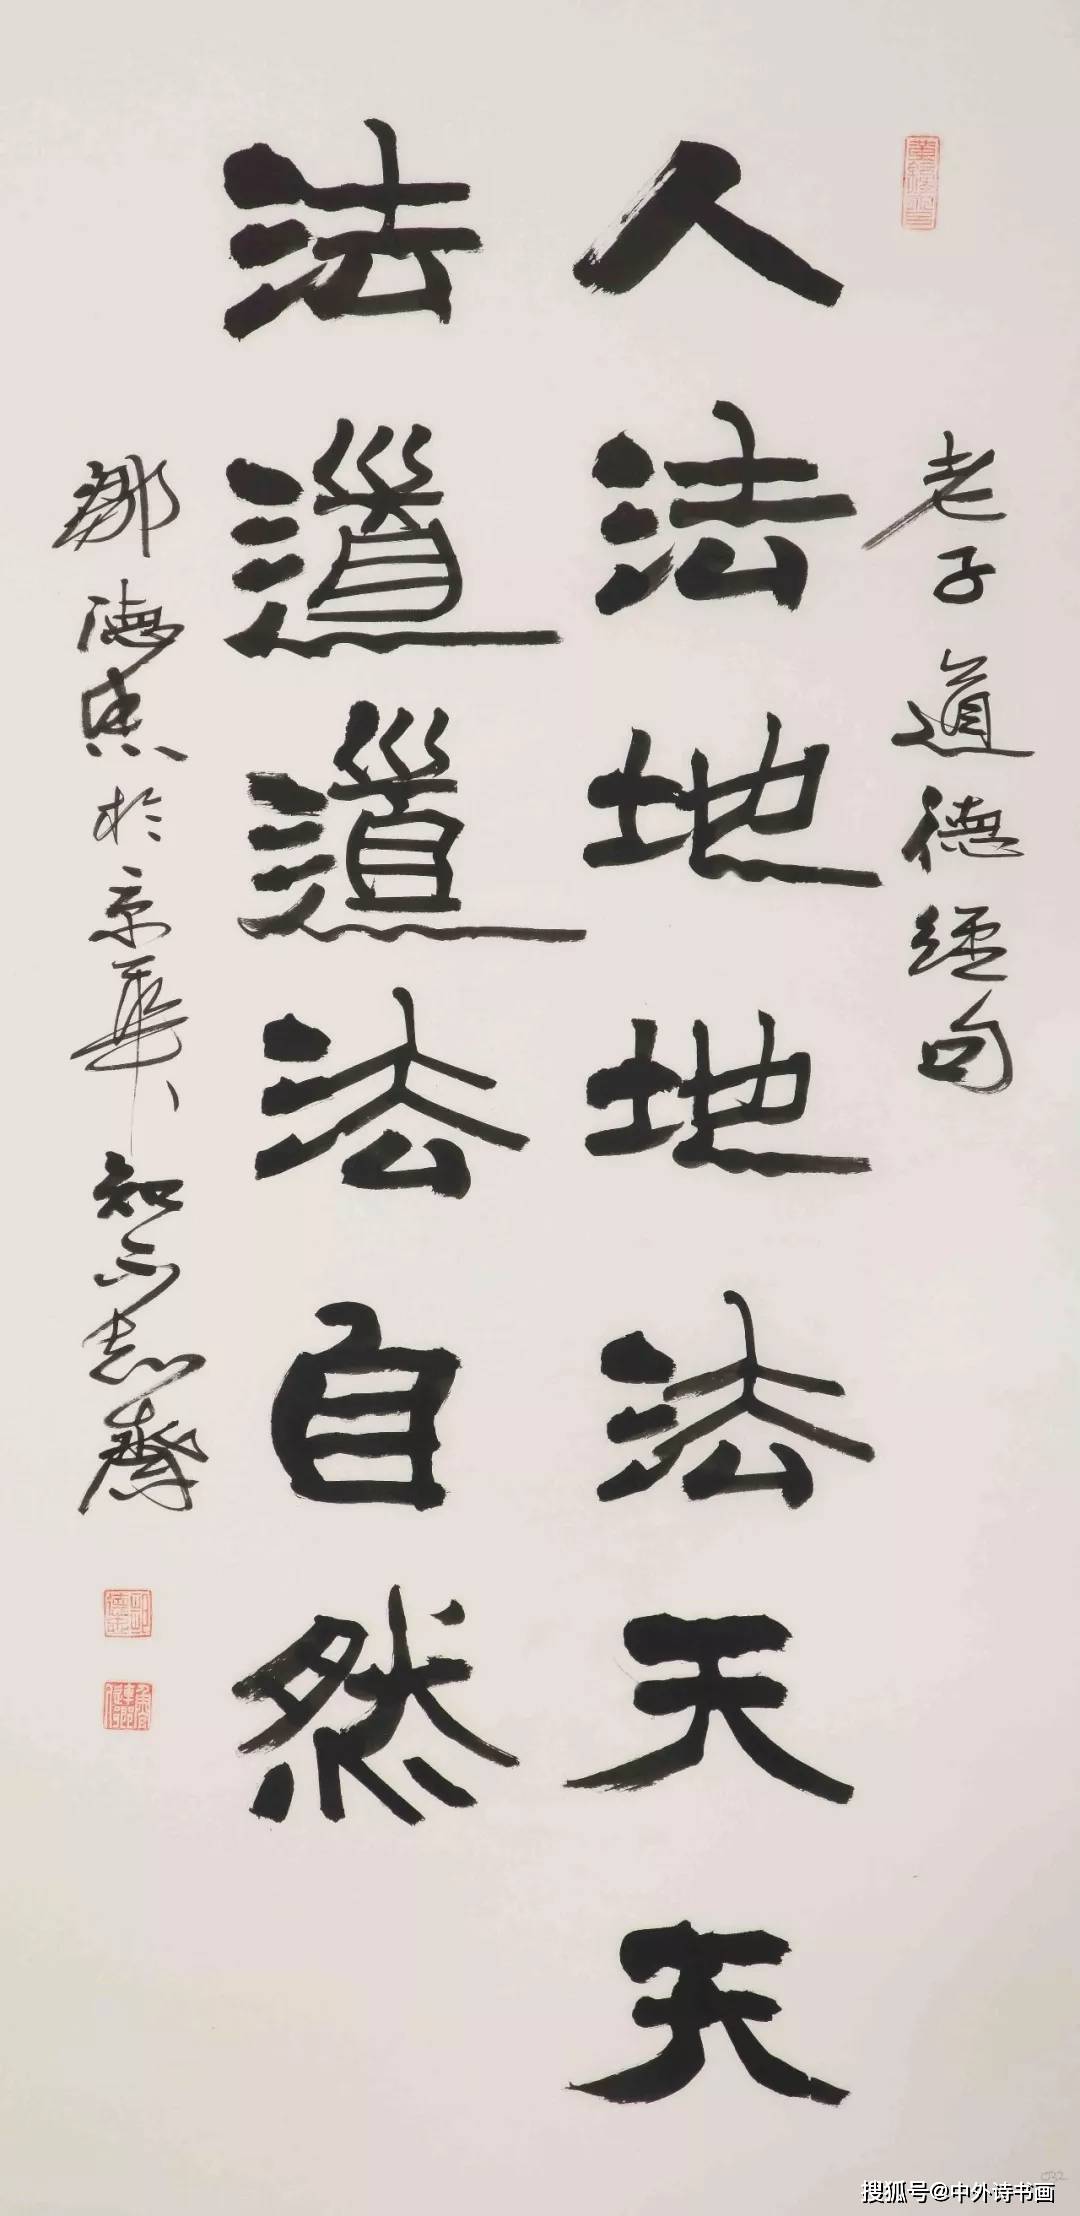 老子道德經句
人法地地法天天
法道道法自然
鄒德忠於京華知不齋
032
搜狐号@中外诗书画